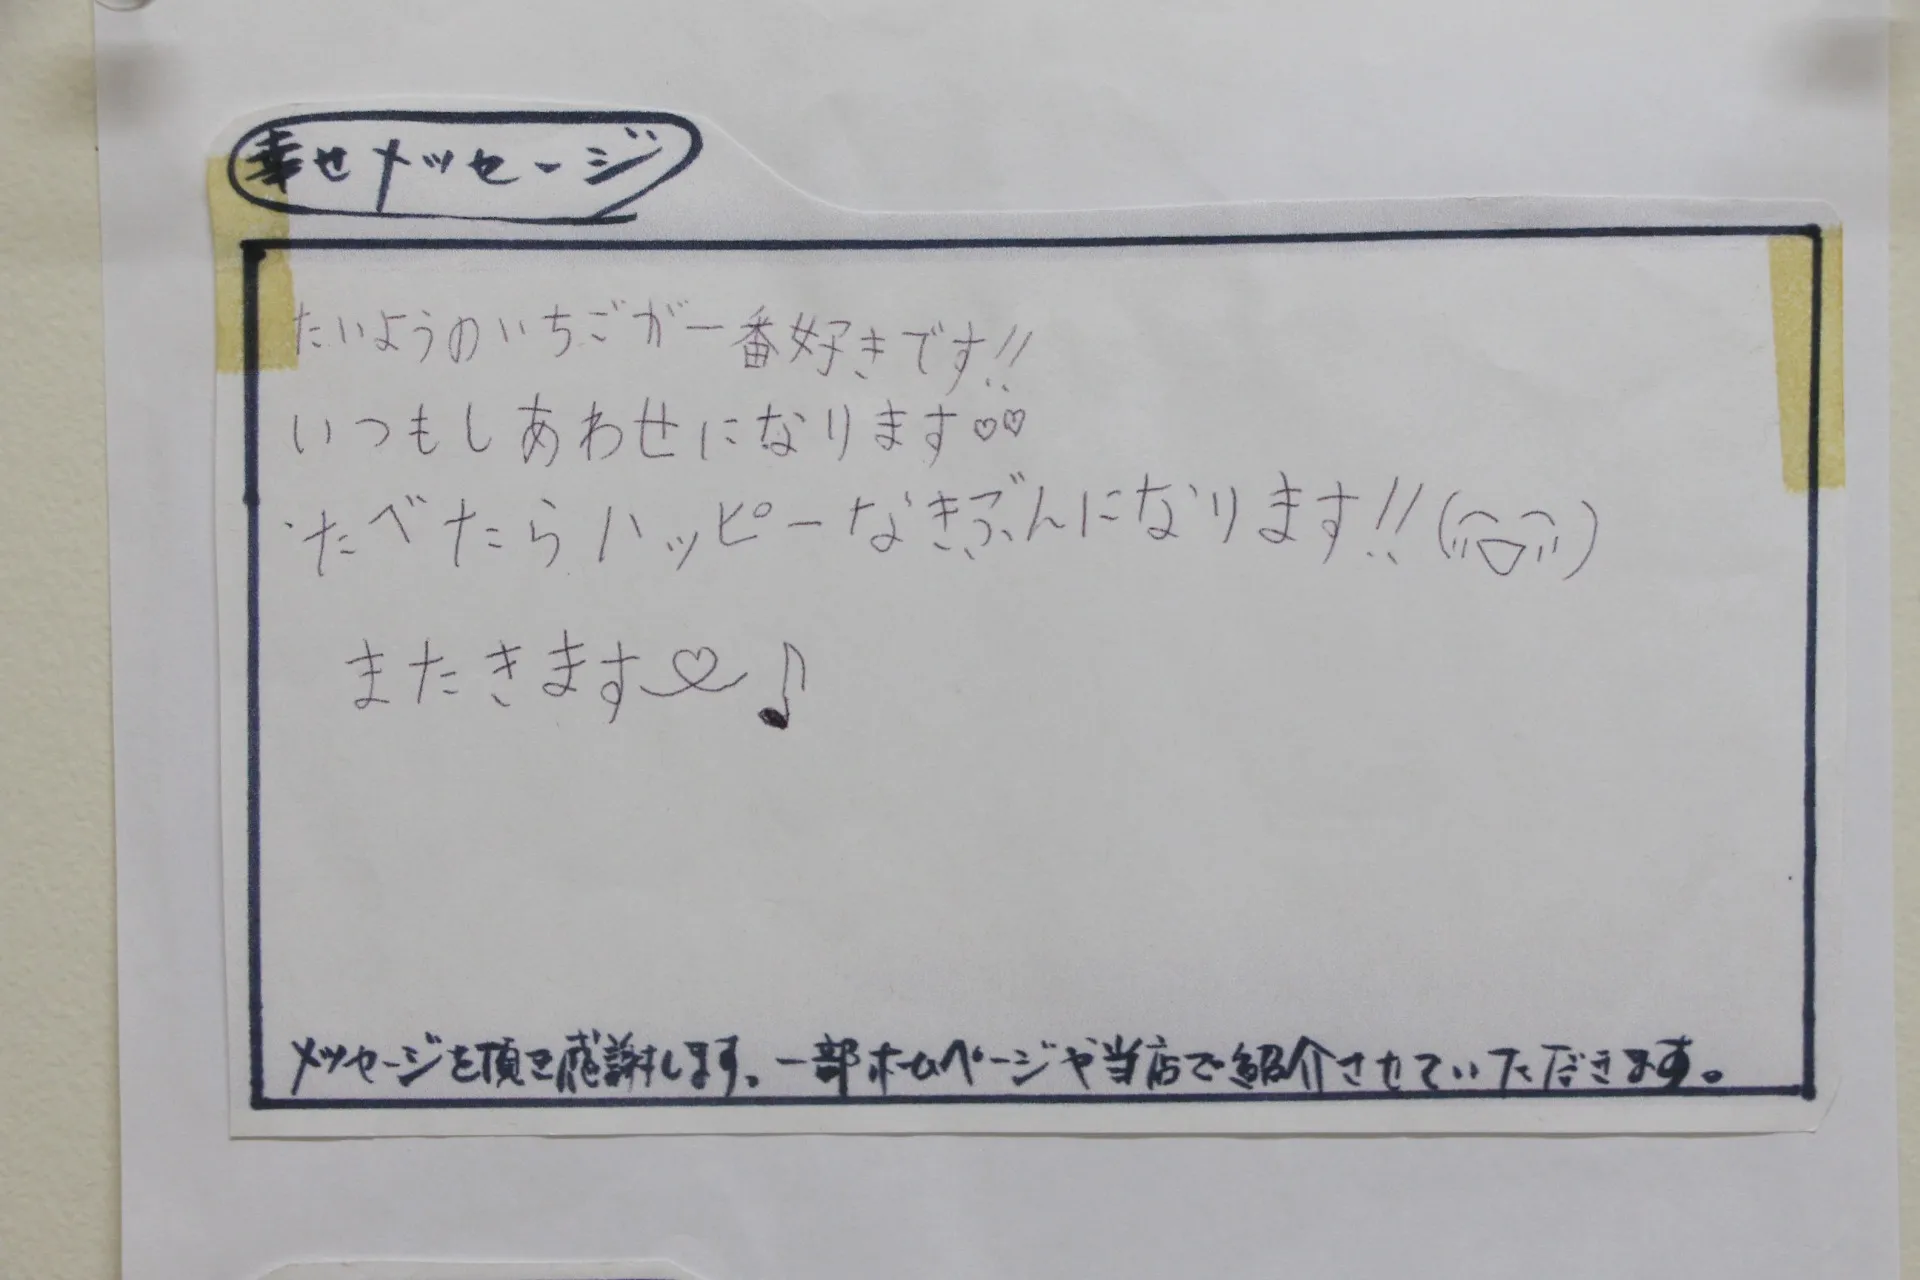 幸せメッセージ
たいようのいちごが一番好きです!!
いつもしあわせになります♡♡
たべたらハッピーなきぶんになります!!
またきます♡♪
メッセージを頂き感謝します。一部ホームページや当店で紹介させていただきます。